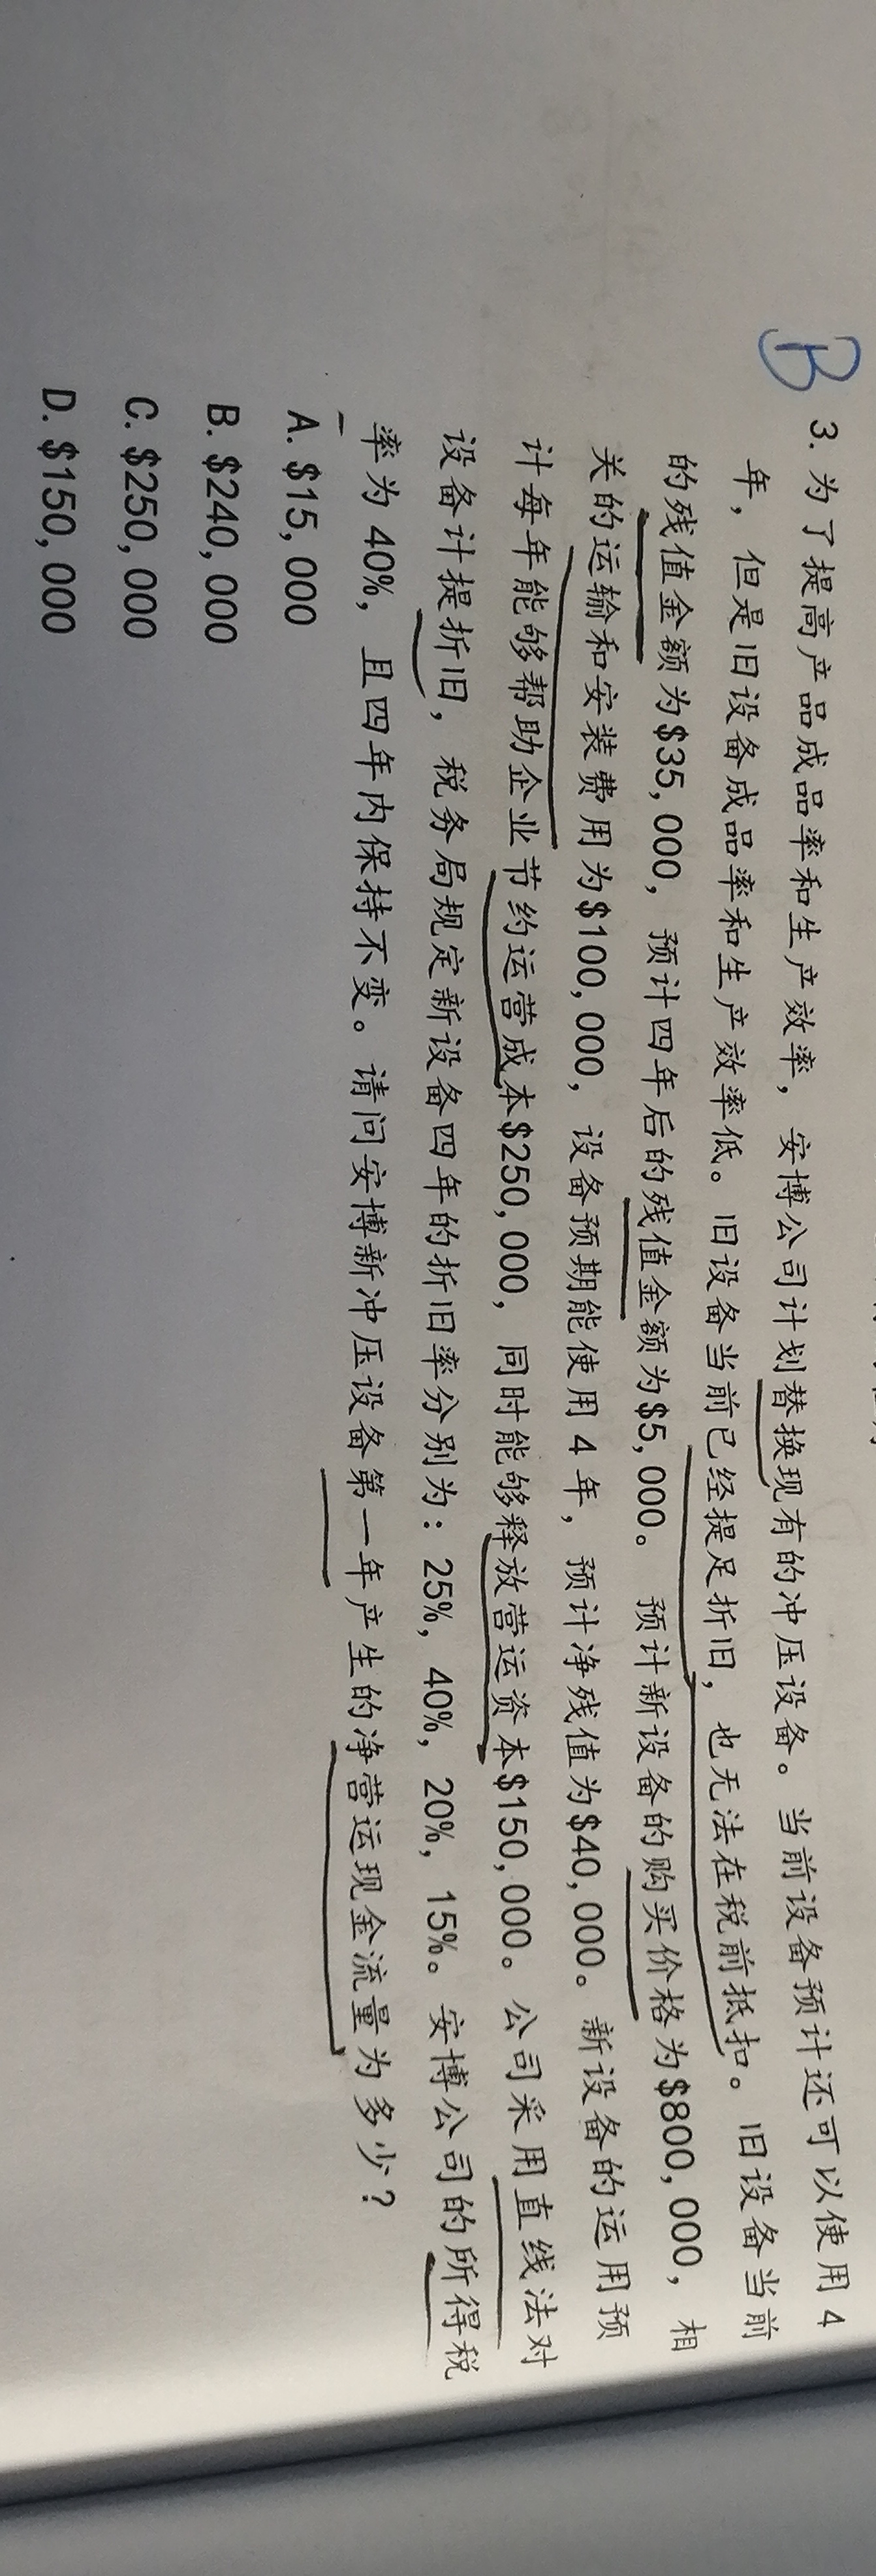 B
3. 为了提高产品成品率和生产效率，安博公司计划替换现有的冲压设备。当前设备预计还可以使用 4
年，但是旧设备成品率和生产效率低。旧设备当前已经提足折旧，也无法在税前抵扣。旧设备当前
的残值金额为$35, 000，预计四年后的残值金额为$5, 000。 预计新设备的购买价格为$800, 000，相
关的运输和安装费用为$100, 000，设备预期能使用 4 年，预计净残值为$40, 000。新设备的运用预
计每年能够帮助企业节约运营成本$250, 000，同时能够释放营运资本$150, 000。公司采用直线法对
设备计提折旧，税务局规定新设备四年的折旧率分别为：25%, 40%, 20%, 15%。安博公司的所得税
率为 40%，且四年内保持不变。请问安博新冲压设备第一年产生的净营运现金流量为多少？
A. $15, 000
B. $240, 000
C. $250, 000
D. $150, 000